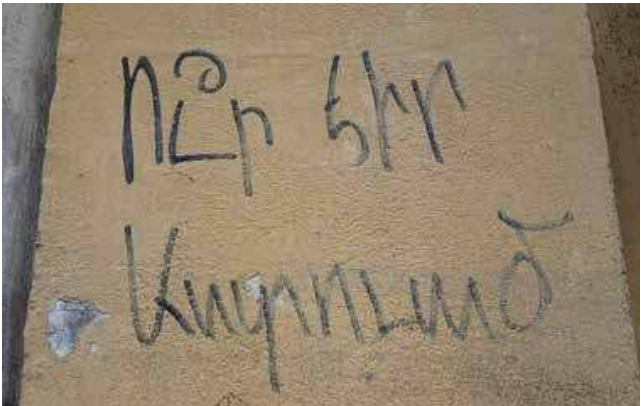 Ու՞ր էիր
Աստուած